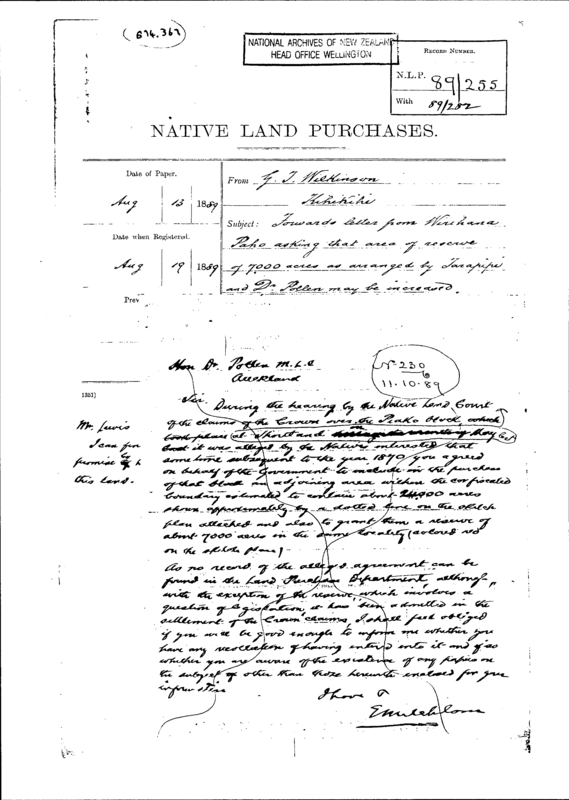 (674.367)
NATIONAL ARCHIVES OF NEW ZEALAND
HEAD OFFICE WELLINGTON
RECORD NUMBER.
N.L.P. 89/255
With 89/252
NATIVE LAND PURCHASES.
Date of Paper.
Aug 13 1889
Date when Registered.
Aug 19 1889
Prev
From G. T. Wilkinson
Kihikihi
Subject: Forwards letter from Wirihana
Paho asking that area of reserve
of 7000 acres as arranged by Tarapipi
and Dr. Pollen may be increased.
Hon Dr. Pollen M.L.C
Auckland
No 230
6
11.10.89
1351]
Mr. Lewis
I can find
promise
this land.
Sir, During the hearing by the Native Land Court
of the claims of the Crown over the Piako Block, which
took place at Shortland May last
it was alleged by the Natives interested that
some time subsequent to the year 1870 you agreed
on behalf of the Government to include in the purchase
of that block an adjoining area within the confiscated
boundary estimated to contain about 24,900 acres
shown approximately by a dotted line on the sketch
plan attached and also to grant them a reserve of
about 7000 acres in the same locality (colored red
on the sketch plan)
As no record of the alleged agreement can be
found in the Land Purchase Department, although
with the exception of the reserve which involves a
question of legislation, it has been admitted in the
settlement of the Crown claims, I shall feel obliged
if you will be good enough to inform me whether you
have any recollection of having entered into it and if so
whether you are aware of the existence of any papers on
the subject other than those herewith enclosed for your
information
I have